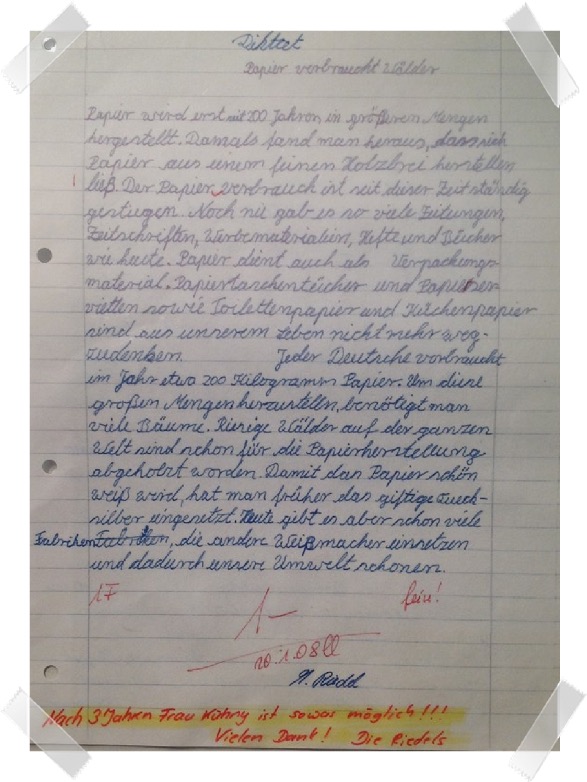 Diktat
Papier verbraucht Wälder
Papier wird erst seit 200 Jahren in größeren Mengen
hergestellt. Damals fand man heraus, dass sich
Papier aus einem feinen Holzbrei herstellen
ließ. Der Papierverbrauch ist seit dieser Zeit ständig
gestiegen. Noch nie gab es so viele Zeitungen,
Zeitschriften, Werbematerialien, Hefte und Bücher
wie heute. Papier dient auch als Verpackungs-
material. Papiertaschentücher und Papierser-
vietten sowie Toilettenpapier und Küchenpapier
sind aus unserem Leben nicht mehr weg-
zudenken. Jeder Deutsche verbraucht
im Jahr etwa 200 Kilogramm Papier. Um diese
großen Mengen herzustellen, benötigt man
viele Bäume. Riesige Wälder auf der ganzen
Welt sind schon für die Papierherstellung
abgeholzt worden. Damit das Papier schön
weiß wird, hat man früher das giftige Queck-
silber eingesetzt. Heute gibt es aber schon viele
Fabriken Fabriken, die andere Weißmacher einsetzen
und dadurch unsere Umwelt schonen.
1F fein!
1-
20.1.08
Nach 3 Jahren Frau Kühny ist sowas möglich!!!
Vielen Dank! Die Riedels